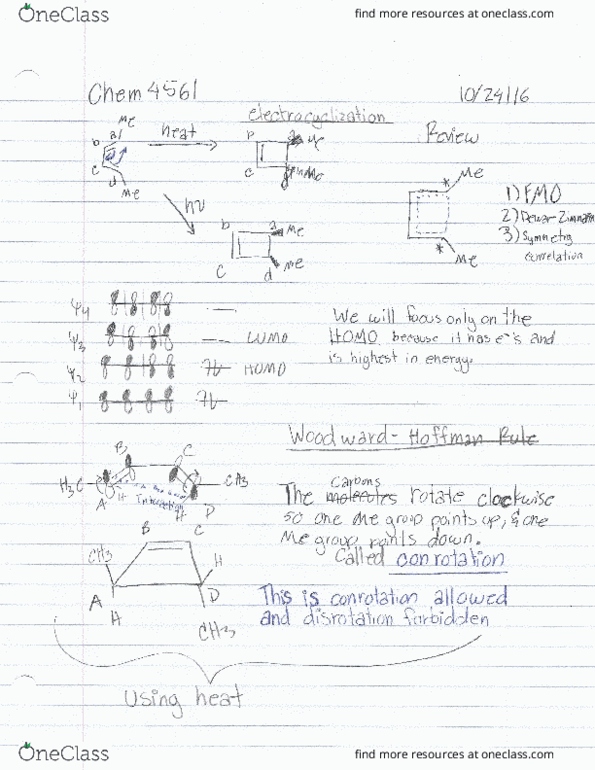 OneClass
find more resources at oneclass.com
Chem 4561
10/24/16
electracyclization
Review
Me
b a
heat
b a Me
c
c d Me
d
Me
hν
b a Me
c d Me
Me
Me
1) FMO
2) Dewar-Zimmerm
3) Symmetry
correlation
ψ4
ψ3 LUMO
ψ2 HOMO
ψ1
We will focus only on the
HOMO because it has e-'s and
is highest in energy.
Woodward-Hoffman Rule
B C
H3C CH3
A H Interaction H D
Carbons
The molecules rotate clockwise
so one Me group points up, & one
Me group points down.
Called conrotation
B C
CH3 H
A D
H CH3
This is conrotation allowed
and disrotation forbidden
Using heat
OneClass
find more resources at oneclass.com